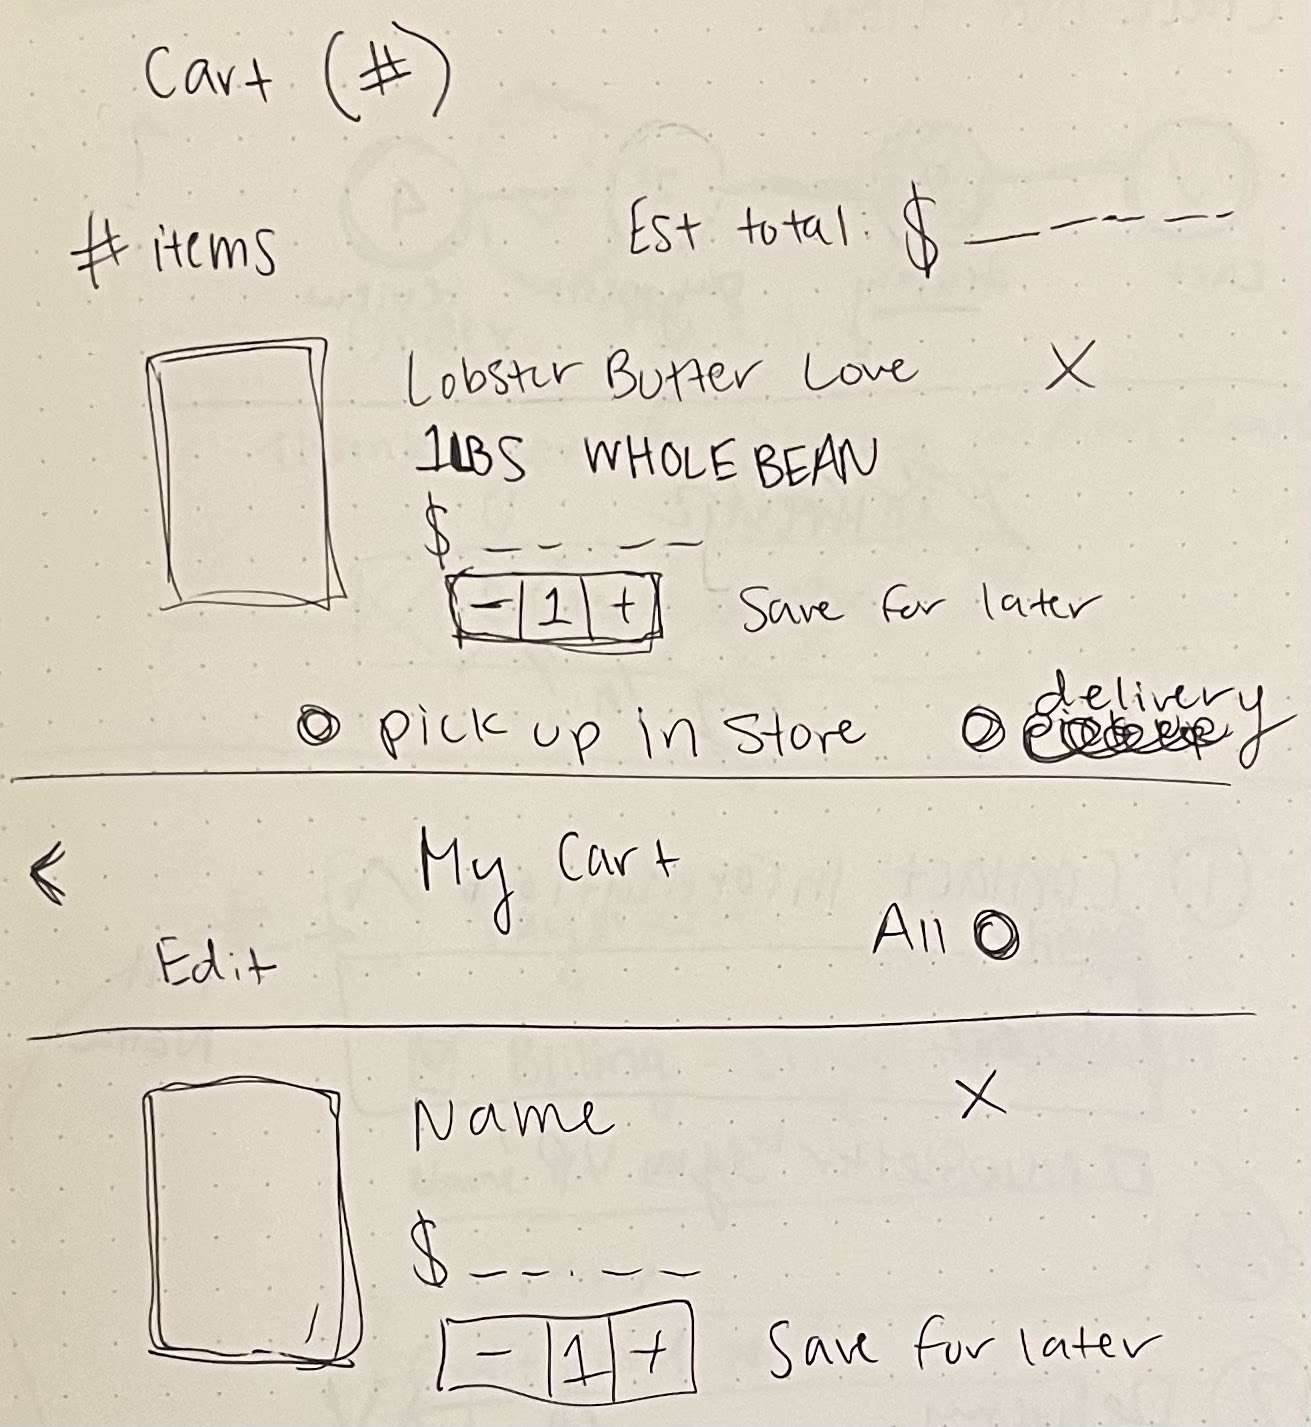 Cart (#)
# items Est total: $ _ _ _ _
Lobster Butter Love X
1LBS WHOLE BEAN
$ _ _ . _ _
- 1 + Save for later
pick up in store delivery
< My Cart
Edit All
Name X
$ _ _ . _ _
- 1 + Save for later